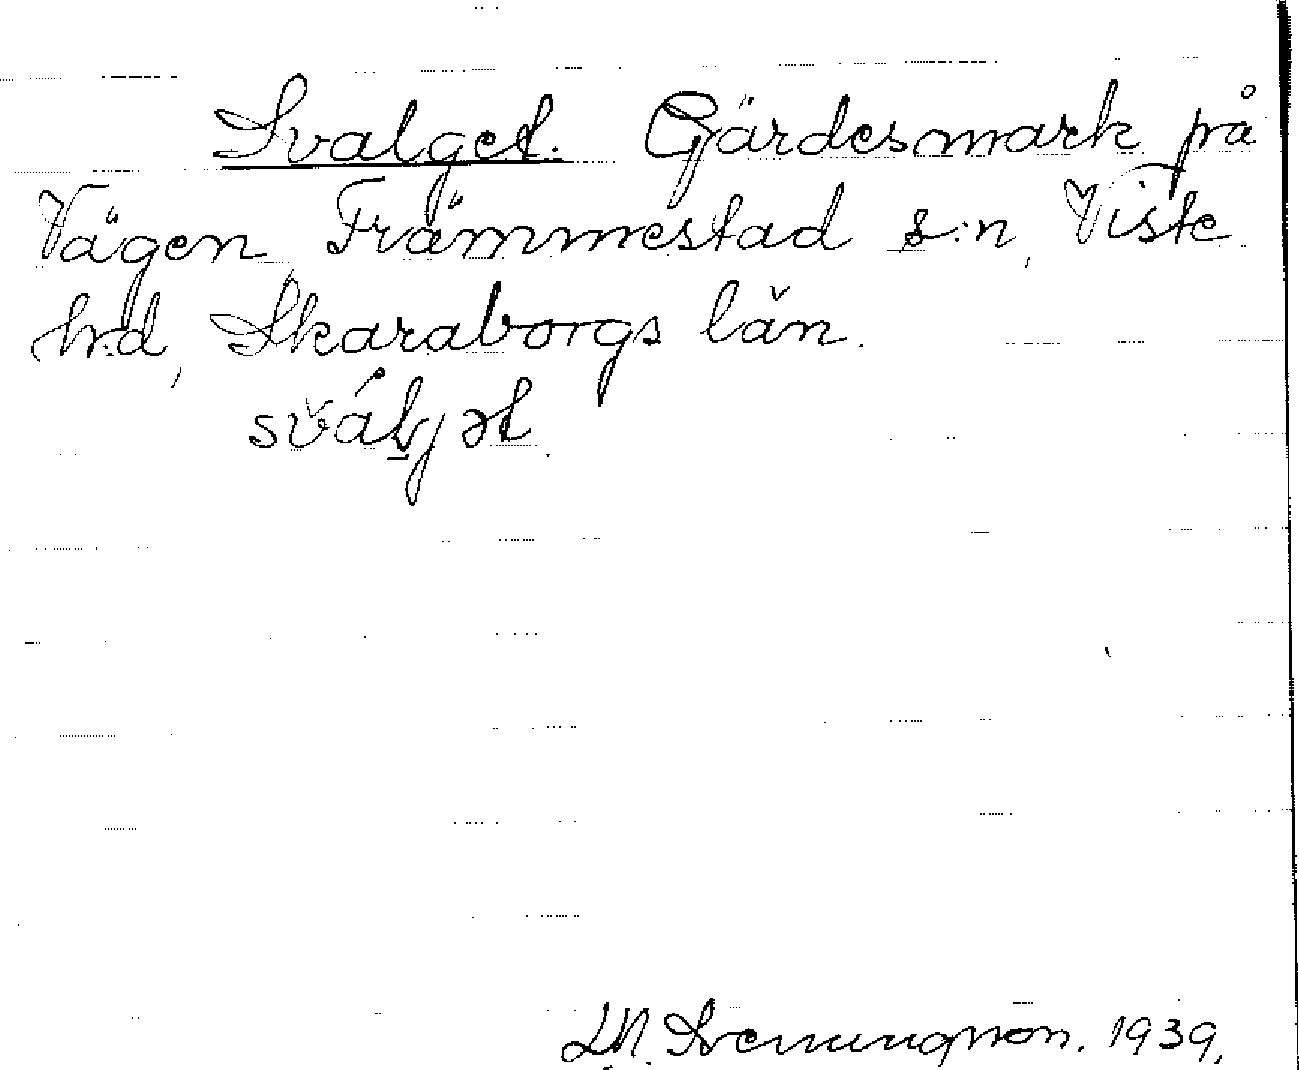 Svalget. Gärdesmark på
Vägen, Främmestad s:n, Viste
hrd, Skaraborgs län.
sváljət.
Svenungsson. 1939.